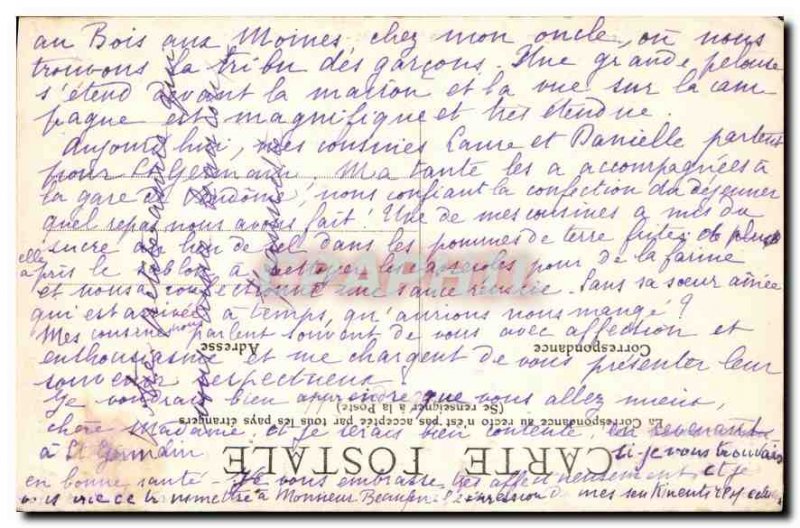 au Bois aux Moines chez mon oncle, où nous
trouvons la tribu des garçons. Une grande pelouse
s'étend devant la maison et la vue sur la cam
pagne est magnifique et très étendue.
Aujourd'hui, mes cousines Laure et Danielle partent
pour St Germain. Ma tante les a accompagnées à
la gare de Vendôme, nous confiant la confection du déjeuner
quel repas nous avons fait! Une de mes cousines a mis du
sucre au lieu de sel dans les pommes de terre frites, de plus
elle a pris le sablon à nettoyer les casseroles pour de la farine
et nous a confectionné une sauce réussie. Sans sa sœur aînée
qui est arrivée à temps, qu'aurions nous mangé?
Mes cousines nous parlent souvent de vous avec affection et
enthousiasme et me chargent de vous présenter leur
souvenir respectueux.
Je voudrais bien apprendre que vous allez mieux,
chère Madame, et je serais bien contente, en revenant
à St Germain si je vous trouvais
en bonne santé. Je vous embrasse très affectueusement et je
vous prie de transmettre à Monsieur l'expression de mes
Correspondance
Adresse
En Correspondance au recto n'est pas acceptée par tous les pays étrangers
(Se renseigner à la Poste)
CARTE POSTALE